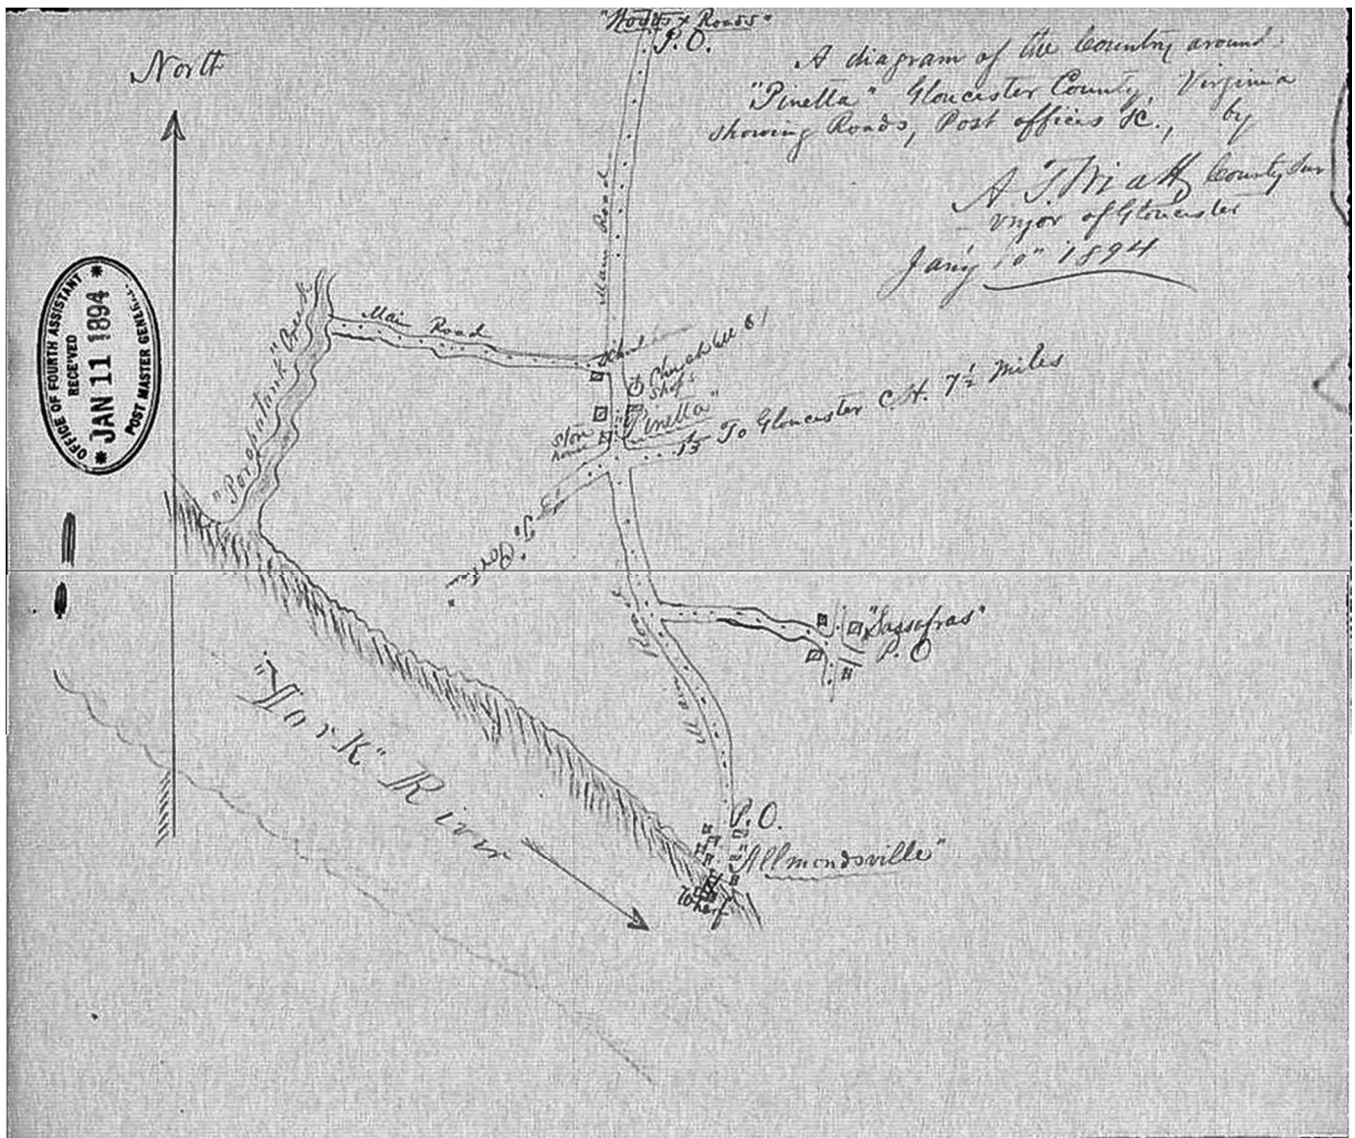 North
P.O.
A diagram of the County around
"Pinetta" Gloucester County, Virginia
showing Roads, Post offices &c., by
A T Wiatt County Sur
veyor of Gloucester
Jan'y 10th 1894
OFFICE OF FOURTH ASSISTANT
RECEIVED
JAN 11 1894
POST MASTER GENERAL
Main Road
"Poropotank" Creek
Main Road
School
Shops
"Pinetta"
Store
house
To Gloucester C.H. 7½ miles
To
"Sassafras"
P.O
Main
"York" River
P.O.
"Allmondsville"
Wharf